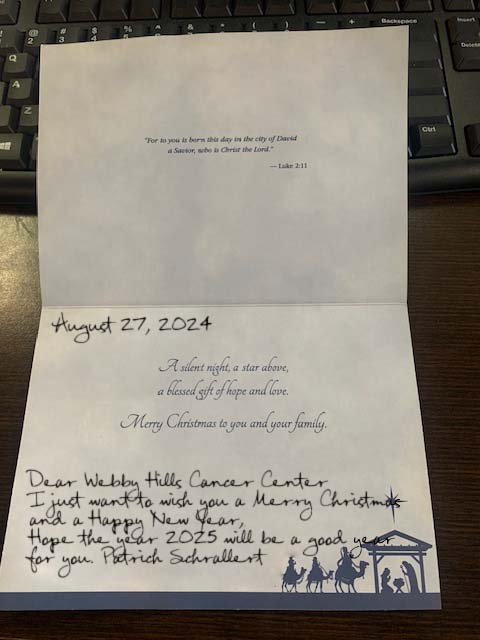 "For to you is born this day in the city of David
a Savior, who is Christ the Lord."
— Luke 2:11
August 27, 2024
A silent night, a star above,
a blessed gift of hope and love.
Merry Christmas to you and your family.
Dear Webby Hills Cancer Center
I just want to wish you a Merry Christmas
and a Happy New Year,
Hope the year 2025 will be a good year
for you. Patrich Schrallert